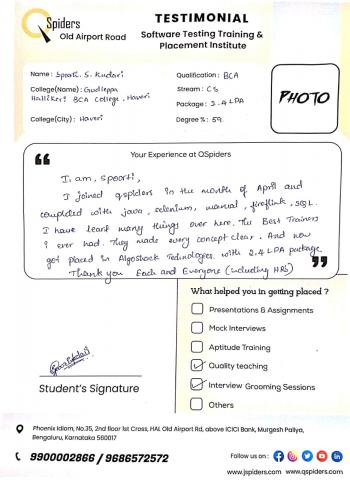 QSpiders
Old Airport Road
TESTIMONIAL
Software Testing Training &
Placement Institute
Name : Spoorti. S. Kudari
College(Name) : Gudleppa
Hallikeri BCA College, Haveri
College(City) : Haveri
Qualification : BCA
Stream : CS
Package : 2.4 LPA
Degree % : 59.
PHOTO
Your Experience at QSpiders
I, am, Spoorti,
I joined qspiders in the month of April and
completed with java, selenium, manual, fireflink, SQL.
I have leart many things over here. The Best Trainers
I ever had. They made every concept clear. And now
got placed in Algostack Technologies. with 2.4 LPA package
Thank you Each and Everyone (including HRs)
What helped you in getting placed ?
Presentations & Assignments
Mock Interviews
Aptitude Training
Quality teaching
Interview Grooming Sessions
Others
Student's Signature
Phoenix Idiom, No.35, 2nd floor 1st Cross, HAL Old Airport Rd, above ICICI Bank, Murgesh Pallya,
Bengaluru, Karnataka 560017
9900002866 / 9686572572
Follow us on :
www.jspiders.com www.qspiders.com